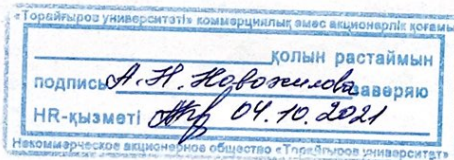 «Торайғыров университеті» коммерциялық емес акционерлік қоғамы
қолын растаймын
подпись А.Н. Новожилова заверяю
HR-қызметі 04.10.2021
Некоммерческое акционерное общество «Торайғыров университет»